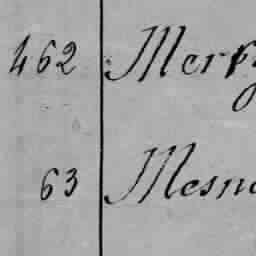 462 Merk
63 Mesn